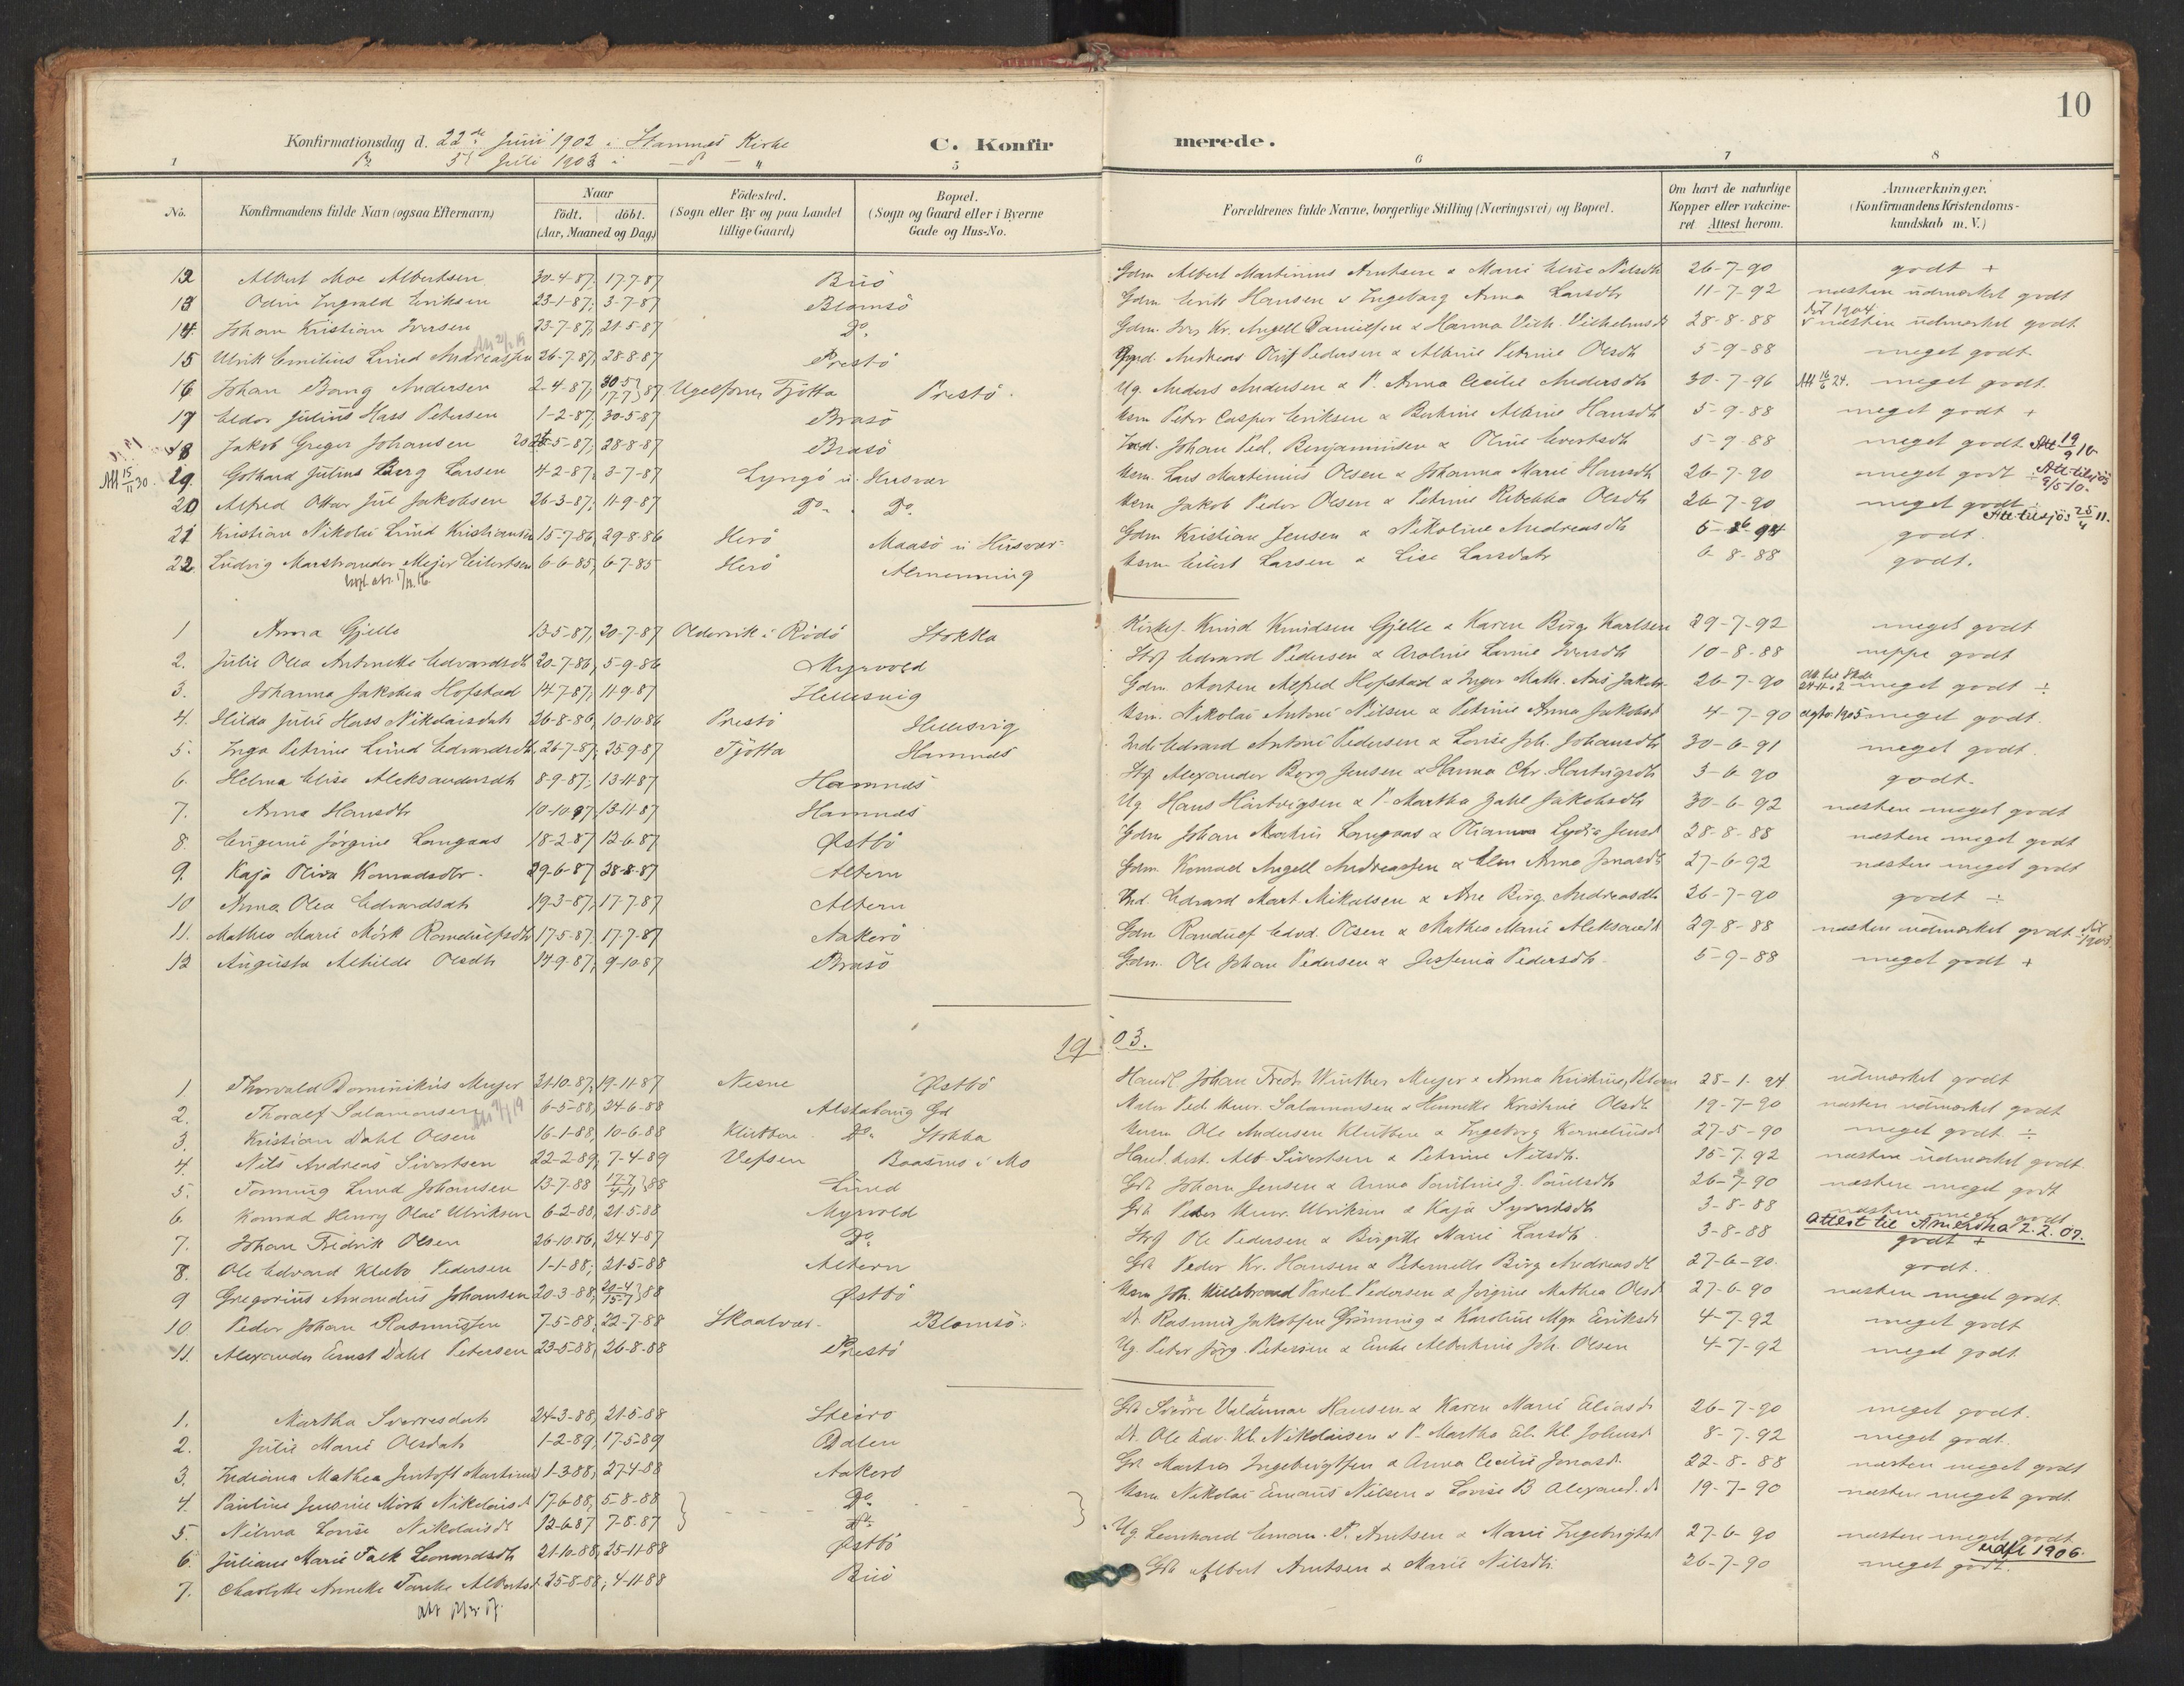 10
Konfirmationsdag d. 22de Juni 1902 i Hamnæs Kirke
5te Juli 1903 i
C. Konfirmerede.
1 5 6 7 8
No. Konfirmandens fulde Navn (ogsaa Efternavn) Naar födt. döbt. (Aar, Maaned og Dag) Födested. (Sogn eller By og paa Landet tillige Gaard) Bopæl. (Sogn og Gaard eller i Byerne Gade og Hus-No. Forældrenes fulde Navne, borgerlige Stilling (Næringsvei) og Bopæl. Om havt de naturlige Kopper eller vakcineret Attest herom. Anmærkninger. (Konfirmandens Kristendomskundskab m. V.)
12 Albert Moe Albertsen 30-4-87, 17-7-87 Buö Gdm Albert Martinius Arntsen & Marie Elise Nilsdtr 26-7-90 godt +
13 Odin Ingvald Eriksen 23-1-87, 3-7-87 Blomsö Gdm Erik Hansen & Ingeborg Anna Larsdtr 11-7-92 næsten udmærket godt
14. Johan Kristian Iversen 23-7-87, 21-5-87 Do. Gdm. Iver Kr. Angell Danielsen & Hanna Vilh. Vilhelmsd 28-8-88 1904 næsten udmærket godt
15 Ulrik Emilius Lund Andreassen 26-7-87, 28-8-87 Prestö Andreas Oluf Pedersen & Albine Petrine Olsdtr 5-9-88 meget godt
16 Johan Bang Andersen 2-4-87, 30-5 17-7 87 Tjötta Prestö. Ug. Anders Andersen & P. Anna Cecilie Andersdtr 30-7-96 Att 16/6 24. meget godt.
17 Eldor Julius Hass Petersen 1-2-87, 30-5-87 Brasö Hsm Peter Casper Eriksen & Berthine Albine Hansdtr 5-9-88 meget godt +
18 Jakob Greger Johansen 20-5-87, 28-8-87 Brasö Ind. Johan Ped. Benjaminsen & Oline Evertsdtr 5-9-88 meget godt Att 19/9 10
Att 15/11 30. 19. Gothard Julius Berg Larsen 4-2-87, 3-7-87 Lyngö u. Husvær Hsm. Lars Martinius Olsen & Johanna Marie Hansdtr 26-7-90 meget godt Att tilsjös 9/5 10.
20 Alfred Ottar Jul Jakobsen 26-3-87, 11-9-87 Do. Do. Hsm Jakob Peder Olsen & Petrine Rebekka Olsdtr 26-7-90 meget godt Att tilsjös 25/4 11.
21 Kristian Nikolai Lund Kristiansen 15-7-86, 29-8-86 Herö Maasö u Husvær Gdm Kristian Jensen & Nikoline Andreasdtr 5-6 94 godt.
22. Ludvig Marstrander Mejer Eilertsen 6-6-85, 6-7-85 Herö Almenning Hsm Eilert Larsen & Lise Larsdatr 6-8-88 godt.
1 Anna Gjelle 13-5-87, 20-7-87 Oldervik i Rödö Stokka Kirkes. Knud Knudsen Gjelle & Karen Birg. Karlsen 29-7-92 meget godt
2. Julie Olea Antonette Edvardsdtr 20-7-86, 5-9-86 Myrvold Edvard Pedersen & Aroline Lamie Iversdtr 10-8-88 neppe godt
3. Johanna Jakobea Hofstad 14-7-87, 11-9-87 Hellesvig Gdm Morten Alfred Hofstad & Inger Math. Ans Jakobs 26-7-90 meget godt ÷
4. Hilda Julie Hass Nikolaisdatr 26-8-86, 10-10-86 Prestö Hellesvig Hsm. Nikolai Antoni Nilsen & Petrine Anna Jakobsd 4-7-90 1905 meget godt.
5. Inga Petrine Lund Edvardsdtr, 26-7-87, 25-9-87 Tjötta Hamnæs Ind. Edvard Antoni Pedersen & Lovise Joh. Johansdtr 30-6-91 meget godt.
6. Helma Elise Aleksandersdtr 8-9-87, 13-11-87 Hamnæs Alexander Berg Jensen & Hanna Chr. Hartvigsdtr 3-6-90 godt.
7. Anna Hansdtr 10-10-87, 13-11-87 Hamnæs Ug Hans Hartvigsen & P. Martha Zahl Jakobsdtr 30-6-92 næsten meget godt
8. Eugenie Jörgine Langaas 18-2-87 12-6-87 Østbö Gdm Johan Martin Langaas & Olianna Lydia Jensd 28-8-88 næsten meget godt
9. Kaja Oliva Konradsdtr. 29-6-87 28-8-87 Altern Gdm. Konrad Angell Andreassen & Elen Anna Jonasdtr 27-6-92 næsten meget godt
10 Anna Olea Edvardsdatr 19-3-87, 17-7-87 Altern Ind. Edvard Mart Mikalsen & Ane Birg. Andreasdtr 26-7-90 godt ÷
11. Mathea Marie Mörk Randulfsdtr 17-5-87, 17-7-87 Aakerö Gdm Randulf Edvd. Olsen & Mathea Marie Aleksandd 29-8-88 næsten udmærket godt.
12 Augusta Alhilde Olsdtr 14-9-87, 9-10-87 Brasö Gdm. Ole Johan Pedersen & Jessenia Pedersdtr. 5-9-88 meget godt +
1903.
1 Thorvald Dominikus Meyer 21-10-87, 19-11-87 Nesne Østbö Handl Johan Fredr Winther Meyer & Anna Kristine 25-1-94 udmærket godt
2. Thoralf Salamonsen 6-5-88, 24-6-88 Alstahaug Gd Ped. Salamonsen & Henrikke Kristine Olsdtr 19-7-90 næsten udmærket godt
3. Kristian Dahl Olsen 16-1-88, 10-6-88 Klutten Do. Stokka Ole Andersen Klutten & Ingeborg Korneliusd 27-5-90 meget godt ÷
4. Nils Andreas Sivertsen 22-2-89, 7-4-89 Vefsen Baasmo i Mo Hand. best. Alb. Sivertsen & Petrine Nilsdtr. 15-7-92 næsten udmærket godt.
5. Tonning Lund Johansen 13-7-88 17-7 4-11 88 Lund Johan Jensen & Anna Pauline J. Paulsdtr 26-7-90 næsten meget godt
6. Konrad Henry Olai Ulriksen 6-2-88, 21-5-88 Myrvold Peder Ulriksen & Kaja Syvertsdtr 3-8-88 næsten meget godt
7. Johan Fredrik Olsen 26-10-86, 24-4-87 Do. Ole Pedersen & Birgitte Marie Larsdtr. 3-8-88 Attest til Amerika 2.2.07. godt +
8. Ole Edvard Pedersen 1-1-88, 21-5-88 Altern Peder Kr. Hansen & Peternelle Birg Andreasdtr 27-6-90. godt.
9 Gregorius Amandus Johansen 20-3-88, 20-4 15-7 88 Østbö Hsm Joh. Hildebrand Parel. Pedersen & Jörgine Mathea Olsd 27-6-90 næsten meget godt.
10 Peder Johan Rasmussen 7-5-88, 22-7-88 Skaalvær. Blomsö. Rasmus Jakobsen Grönning & Karoline Mgr. Eriksd 4-7-92 meget godt
11. Alexander Ernst Dahl Petersen 23-5-88, 26-8-88 Prestö Ug. Peter Jörg. Petersen & Enke Albertine Joh. Olsen 4-7-92 meget godt.
1. Martha Sverresdatr 24-3-88, 21-5-88 Steiro Sverre Valdemar Hansen & Karen Marie Eliasd 26-7-90 meget godt.
2. Julie Marie Olsdatr 1-2-89, 17-5-89 Dalen Ole Edv. Kl. Nikolaisen & P. Martha El. Kl. Johnsd 8-7-92 meget godt.
3. Indiana Mathea Justoft Martinsd 1-3-88, 27-4-88 Aakerö Martin Ingebrigtsen & Anna Cecilie Jonasd. 22-8-88 næsten meget godt
4. Pauline Jensine Mörk Nikolaisd 17-6-88, 5-8-88 Do. Hsm. Nikolai Emaus Nilsen & Lovise B Alexand. d 19-7-90 næsten meget godt.
5. Nilma Lovise Nikolaisdtr 12-6-87 7-8-87 Do.
6. Juliane Marie Falk Leonardsdtr 21-10-88, 25-11-88 Østbö Ug Leonhard Eman. N. Arntsen & Marie Ingebrigtsd 27-6-90 næsten meget godt
7. Charlotte Annette Tomine Albertsd. 25-8-88, 4-11-88 Buö Albert Arntsen & Marie Nilsdtr. 26-7-90 udfl 1906. meget godt.